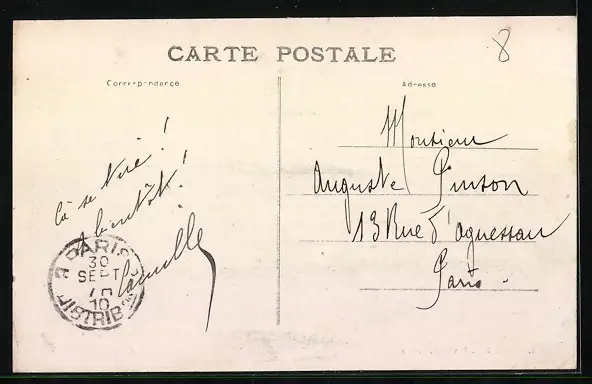 CARTE POSTALE
8
Correspondance
Adresse
Ça se tire !
A bientôt !
Camille
Monsieur
Auguste Pinson
13 Rue d'Aguessau
Paris.
PARIS
30
SEPT
10
DISTRIB